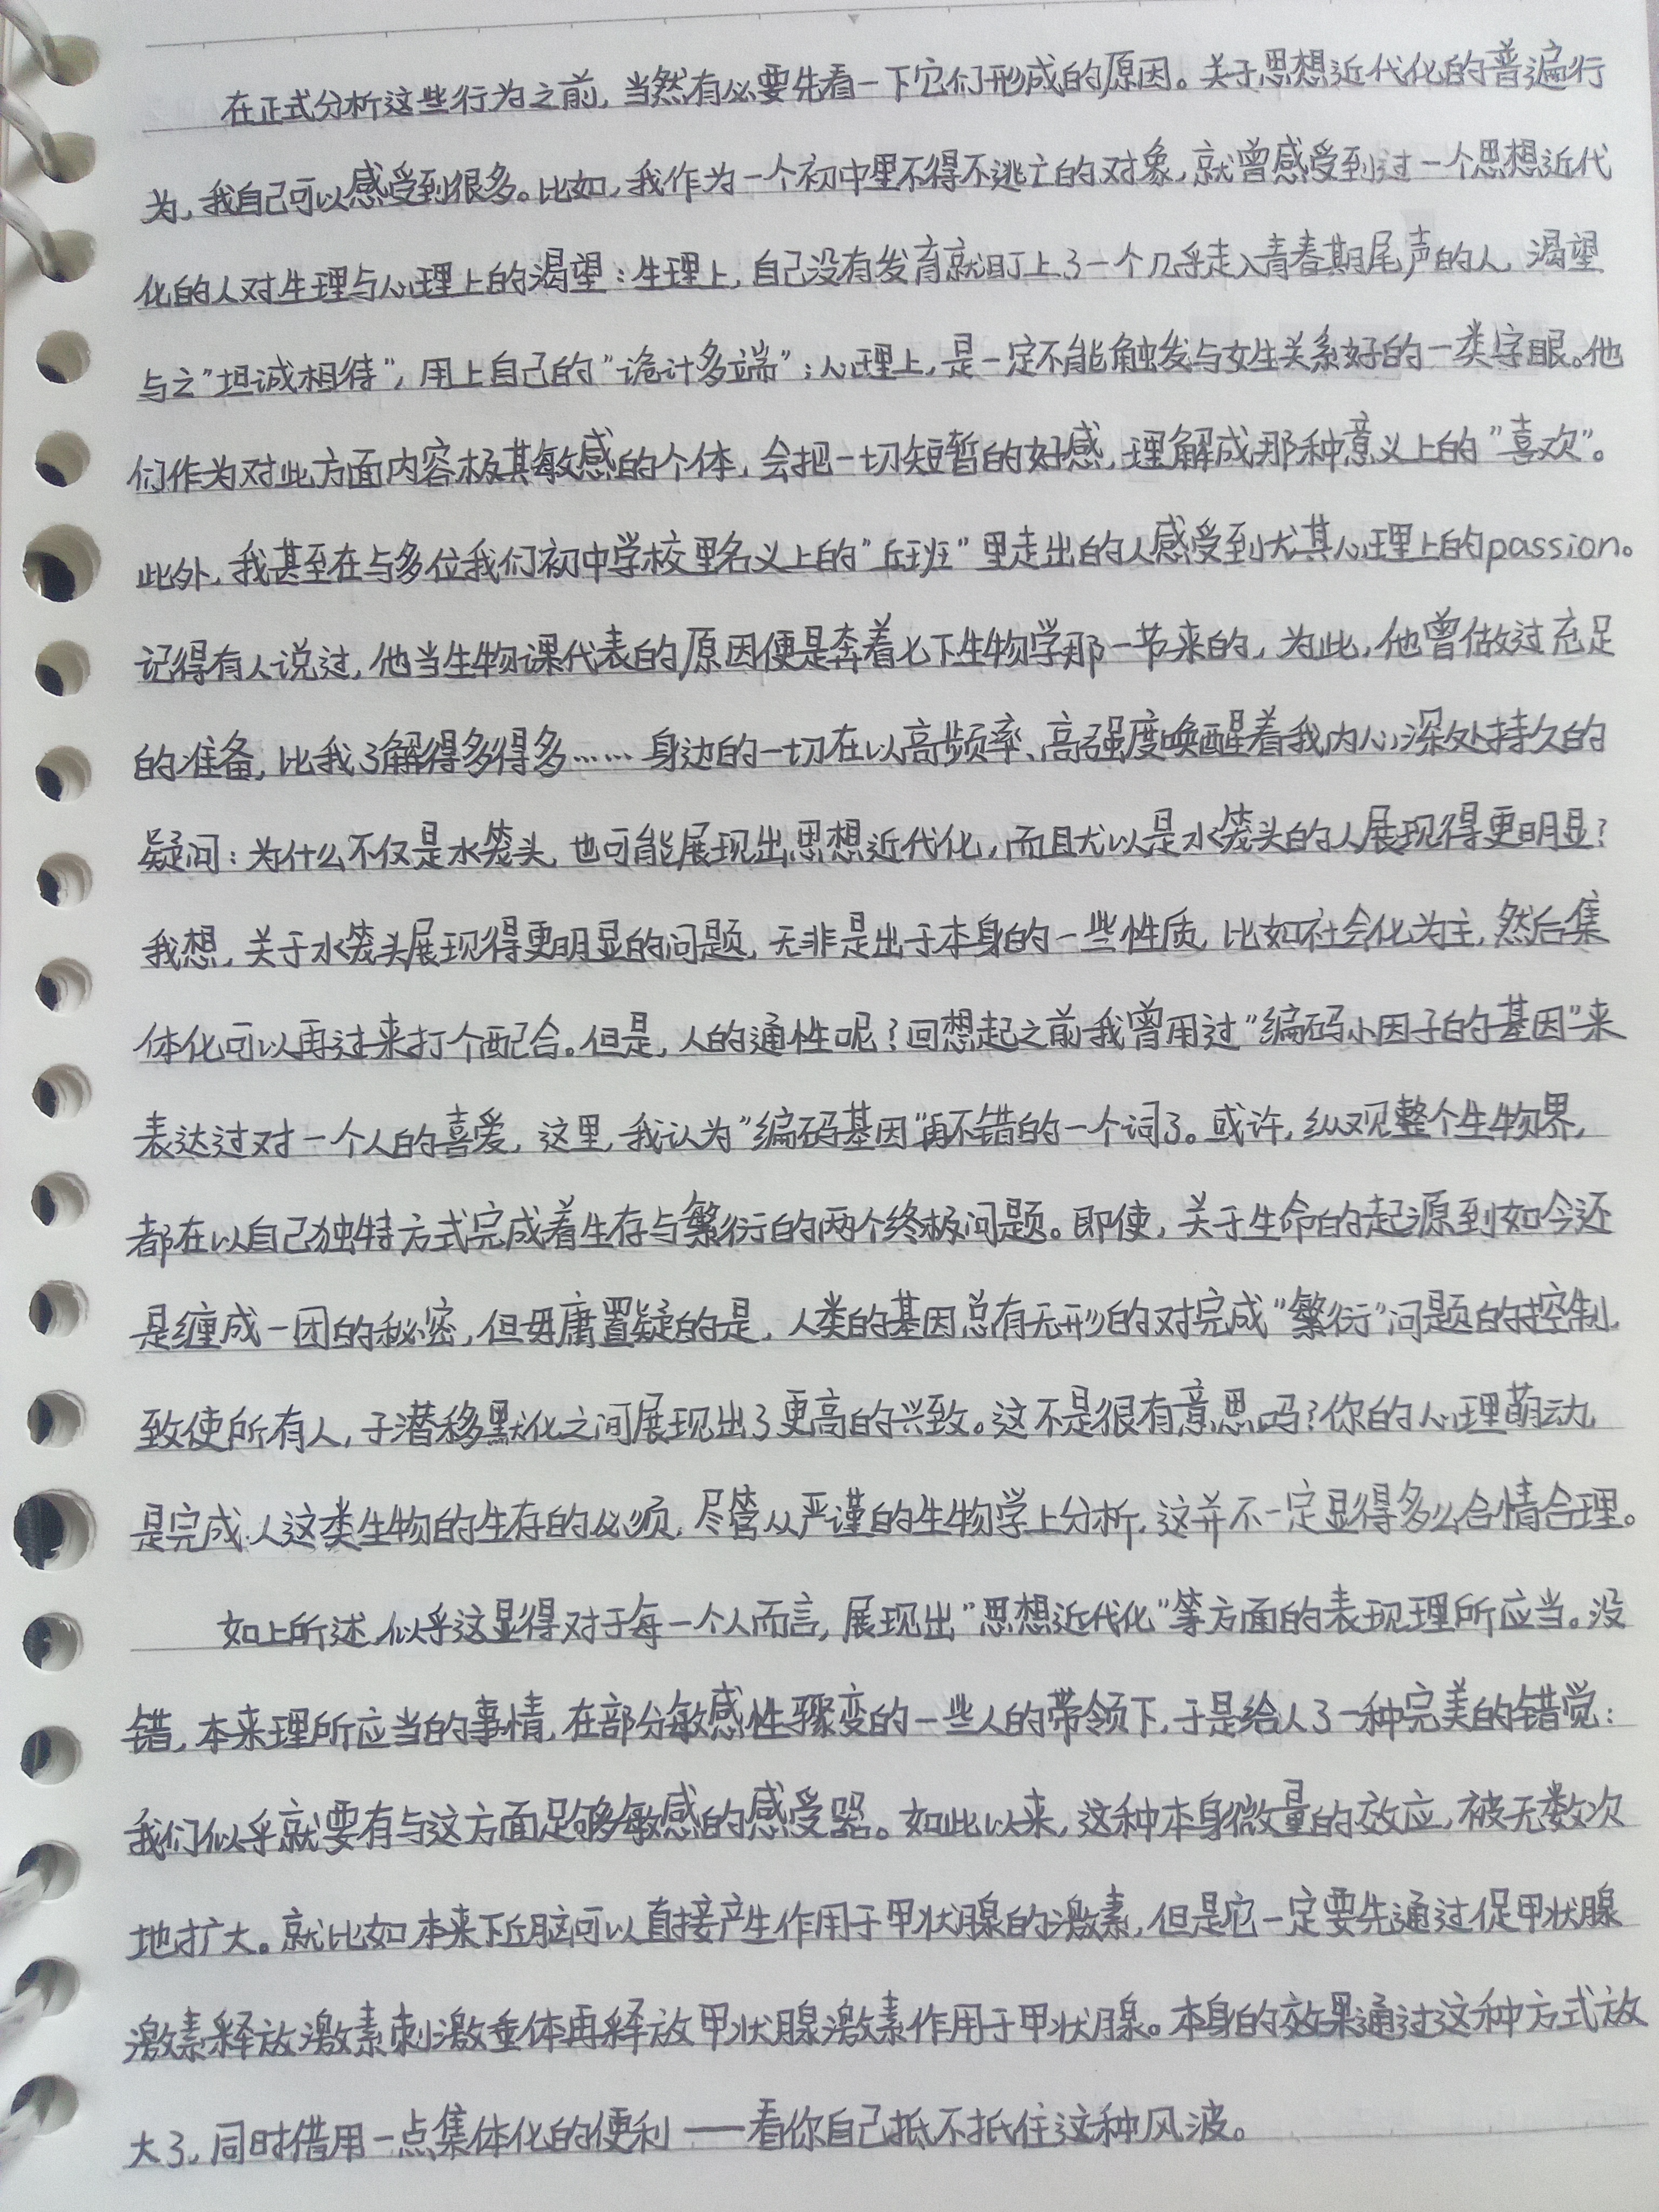 在正式分析这些行为之前，当然有必要先看一下它们形成的原因。关于思想近代化的普遍行
为，我自己可以感受到很多。比如，我作为一个初中里不得不逃亡的对象，就曾感受到过一个思想近代
化的人对生理与心理上的渴望：生理上，自己没有发育就盯上了一个几乎走入青春期尾声的人，渴望
与之"坦诚相待"，用上自己的"诡计多端"；心理上，是一定不能触发与女生关系好的一类字眼。他
们作为对此方面内容极其敏感的个体，会把一切短暂的好感，理解成那种意义上的"喜欢"。
此外，我甚至在与多位我们初中学校里名义上的"丘班"里走出的人感受到尤其心理上的passion。
记得有人说过，他当生物课代表的原因便是奔着七下生物学那一节来的，为此，他曾做过充足
的准备，比我了解得多得多……身边的一切在以高频率、高强度唤醒着我内心深处持久的
疑问：为什么不仅是水笼头，也可能展现出思想近代化，而且尤以是水笼头的人展现得更明显？
我想，关于水笼头展现得更明显的问题，无非是出于本身的一些性质，比如社会化为主，然后集
体化可以再过来打个配合。但是，人的通性呢？回想起之前我曾用过"编码小因子的基因"来
表达过对一个人的喜爱，这里，我认为"编码基因"再不错的一个词了。或许，纵观整个生物界，
都在以自己独特方式完成着生存与繁衍的两个终极问题。即使，关于生命的起源到如今还
是缠成一团的秘密，但毋庸置疑的是，人类的基因总有无形的对完成"繁衍"问题的控制，
致使所有人，于潜移默化之间展现出了更高的兴致。这不是很有意思吗？你的心理萌动，
是完成人这类生物的生存的必须，尽管从严谨的生物学上分析，这并不一定显得多么合情合理。
如上所述，似乎这显得对于每一个人而言，展现出"思想近代化"等方面的表现理所应当。没
错，本来理所应当的事情，在部分敏感性骤变的一些人的带领下，于是给人了一种完美的错觉：
我们似乎就要有与这方面足够敏感的感受器。如此以来，这种本身微量的效应，被无数次
地扩大。就比如本来下丘脑可以直接产生作用于甲状腺的激素，但是它一定要先通过促甲状腺
激素释放激素刺激垂体再释放甲状腺激素作用于甲状腺。本身的效果通过这种方式放
大了，同时借用一点集体化的便利——看你自己抵不抵住这种风波。